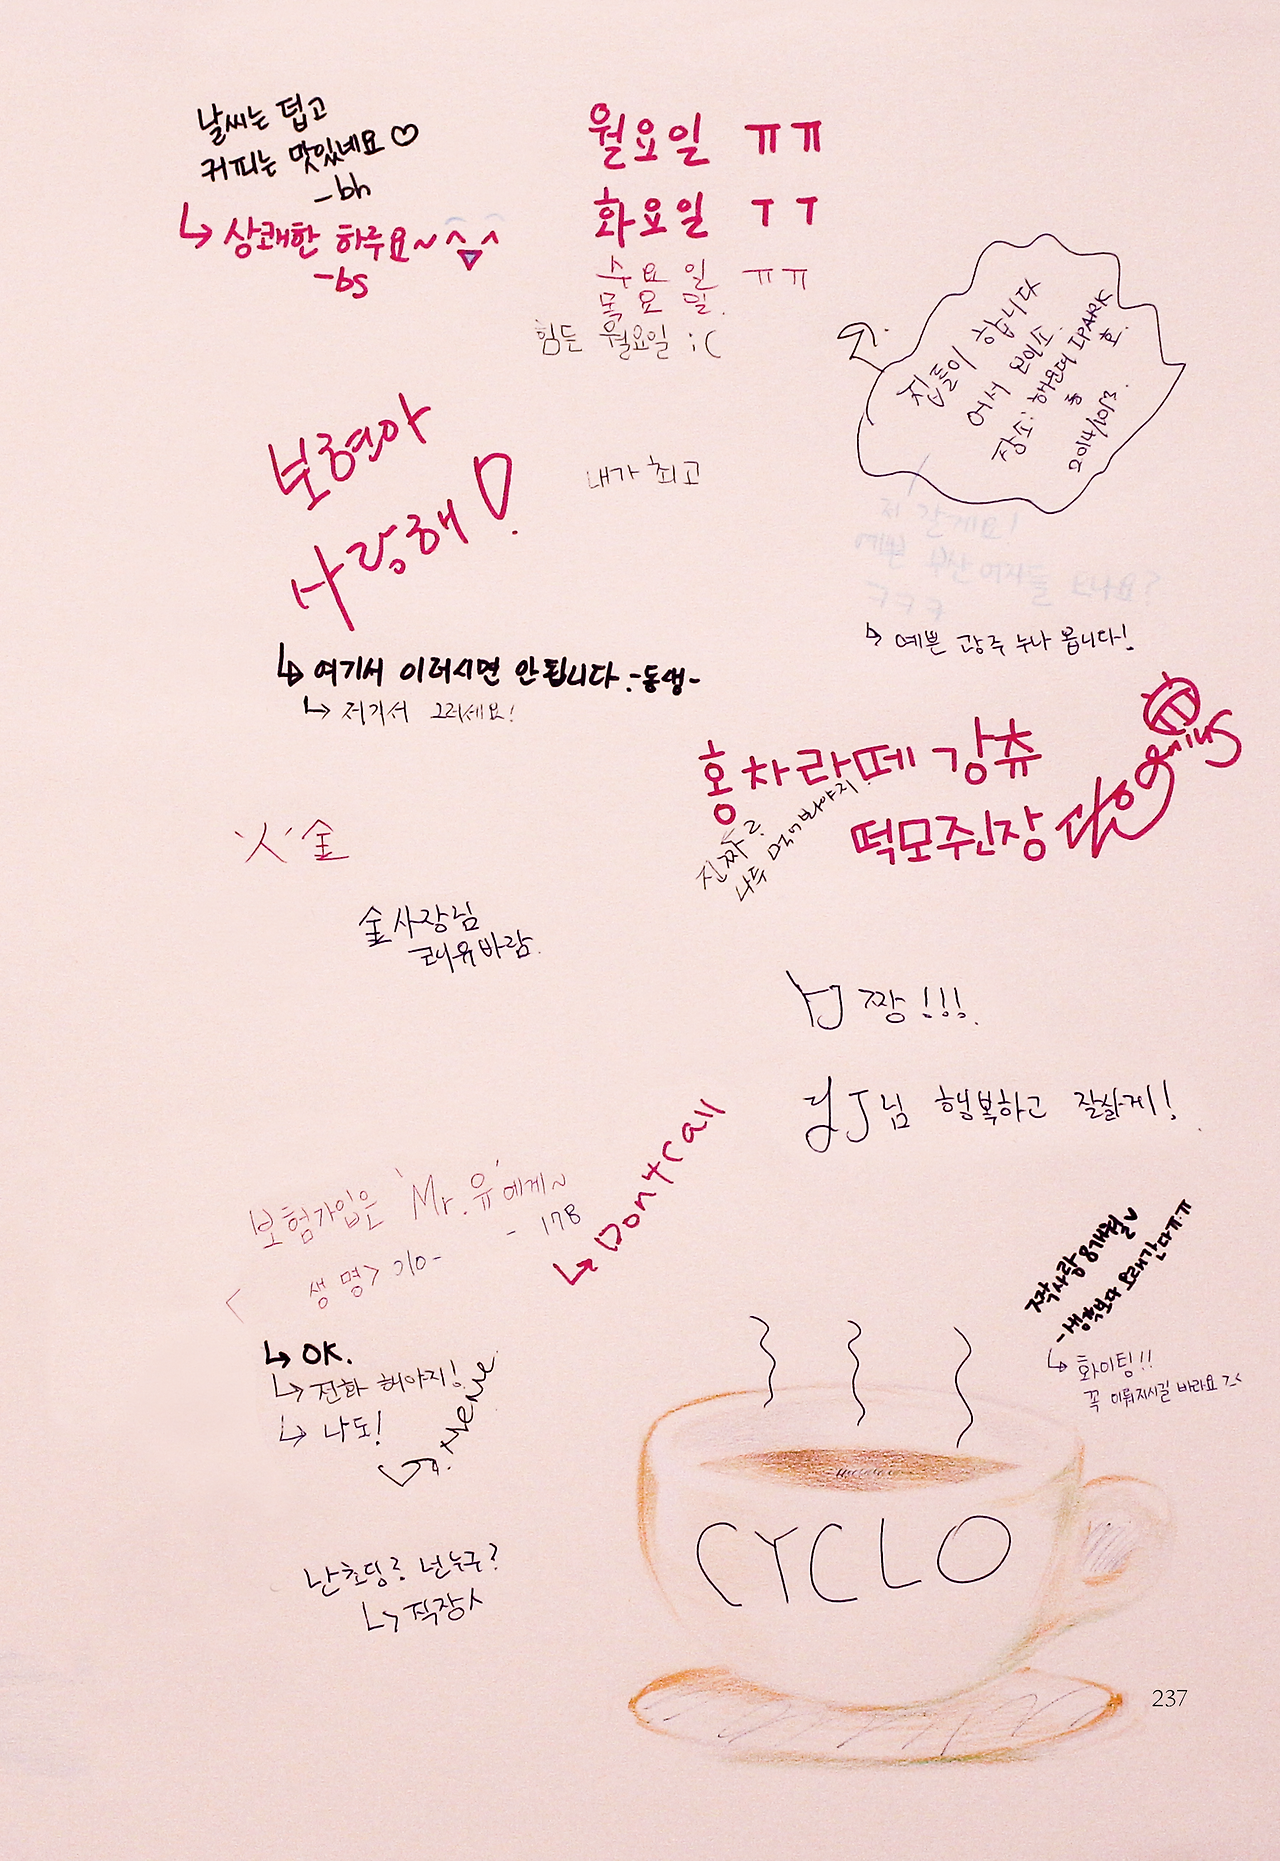 날씨는 덥고
커피는 맛있네요♡
-bh
↳ 상쾌한 하루요~ ^▽^
-bs
월요일 ㅠㅠ
화요일 ㅜㅜ
수요일 ㅠㅠ
목요일.
힘든 월요일 ;(
집들이 합니다
어서 오이소.
장소: 해운대 IPARK
동 호.
2014/10/3.
보현아
사랑해!
내가 최고
저 갈게요!
예쁜 부산여자들 오나요?
ㅋㅋㅋ
↳ 예쁜 광주 누나 봅니다!
↳ 여기서 이러시면 안됩니다.-동생-
↳ 저기서 그러세요!
홍차라떼 강츄
떡모주인장
진짜?
나두 먹어봐야지!
火金
金사장님
쾌유바람.
YJ 짱!!!
YJ님 행복하고 잘살게!
보험가입은 'Mr.유'에게~
- 178
< 생명> 기0-
↳ Don't call
↳ OK.
↳ 전화 해야지!
↳ 나도!
↳ me me
짝사랑 8개월
-생각보다 오래간다ㅠ.ㅠ
↳ 화이팅!!
꼭 이뤄지시길 바라요 >.<
난 초딩? 넌누구?
↳ 직장人
CYCLO
237